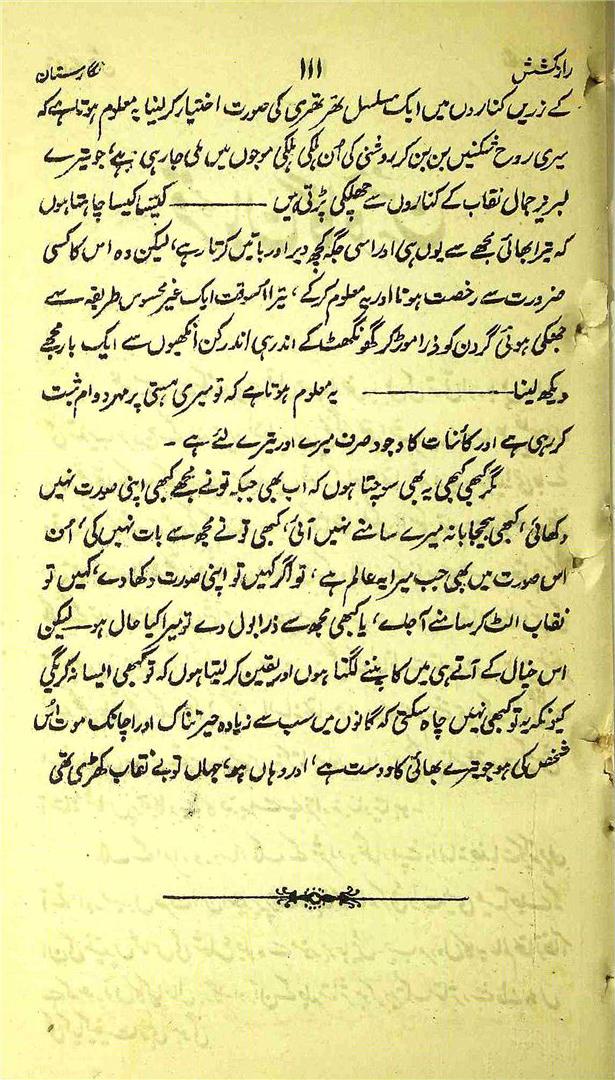 رادکشش ۱۱۱ نگارستان
کے زریں کناروں میں ایک مسلسل تھرتھری کی صورت اختیار کرلینا یہ معلوم ہوتا ہے کہ
میری روح شکنیں بن بن کر روشنی کی اُن ہلکی ہلکی موجوں میں ملی جارہی ہے، جو تیرے
لبریز جمال نقاب کے کناروں سے چھلکی پڑتی ہیں ——— کیسا کیسا چاہتا ہوں
کہ تیرا بھائی مجھے سے یوں ہی اور اسی جگہ کچھ دیر اور باتیں کرتا رہے، لیکن وہ اس کا کسی
ضرورت سے رخصت ہونا اور یہ معلوم کرکے، تیرا اُسوقت ایک غیر محسوس طریقہ سے
جھکی ہوئی گردن کو ذرا موڑ کر گھونگھٹ کے اندر ہی اندر کن انکھیوں سے ایک بار مجھے
دیکھ لینا ——— یہ معلوم ہوتا ہے کہ تو میری ہستی پر مہر دوام ثبت
کررہی ہے اور کائنات کا وجود صرف میرے اور تیرے لئے ہے ۔
مگر کبھی کبھی یہ بھی سوچتا ہوں کہ اب بھی جبکہ تونے مجھے کبھی اپنی صورت نہیں
دکھائی، کبھی بیحجابانہ میرے سامنے نہیں آئی، کبھی تونے مجھ سے بات نہیں کی، اُس
اس صورت میں بھی جب میرا یہ عالم ہے، تو اگر کہیں تو اپنی صورت دکھادے، کہیں تو
نقاب الٹ کر سامنے آجائے، یا کبھی مجھ سے ذرا بول دے تو میرا کیا حال ہو۔ لیکن
اس خیال کے آتے ہی میں کانپنے لگتا ہوں اور یقین کرلیتا ہوں کہ تو کبھی ایسا نہ کریگی
کیونکہ یہ تو کبھی نہیں چاہ سکتی کہ گانوں میں سب سے زیادہ حیرتناک اور اچانک موت اُس
شخص کی ہو جو تیرے بھائی کا دوست ہے، اور وہاں ہو، جہاں تو بے نقاب کھڑی تھی